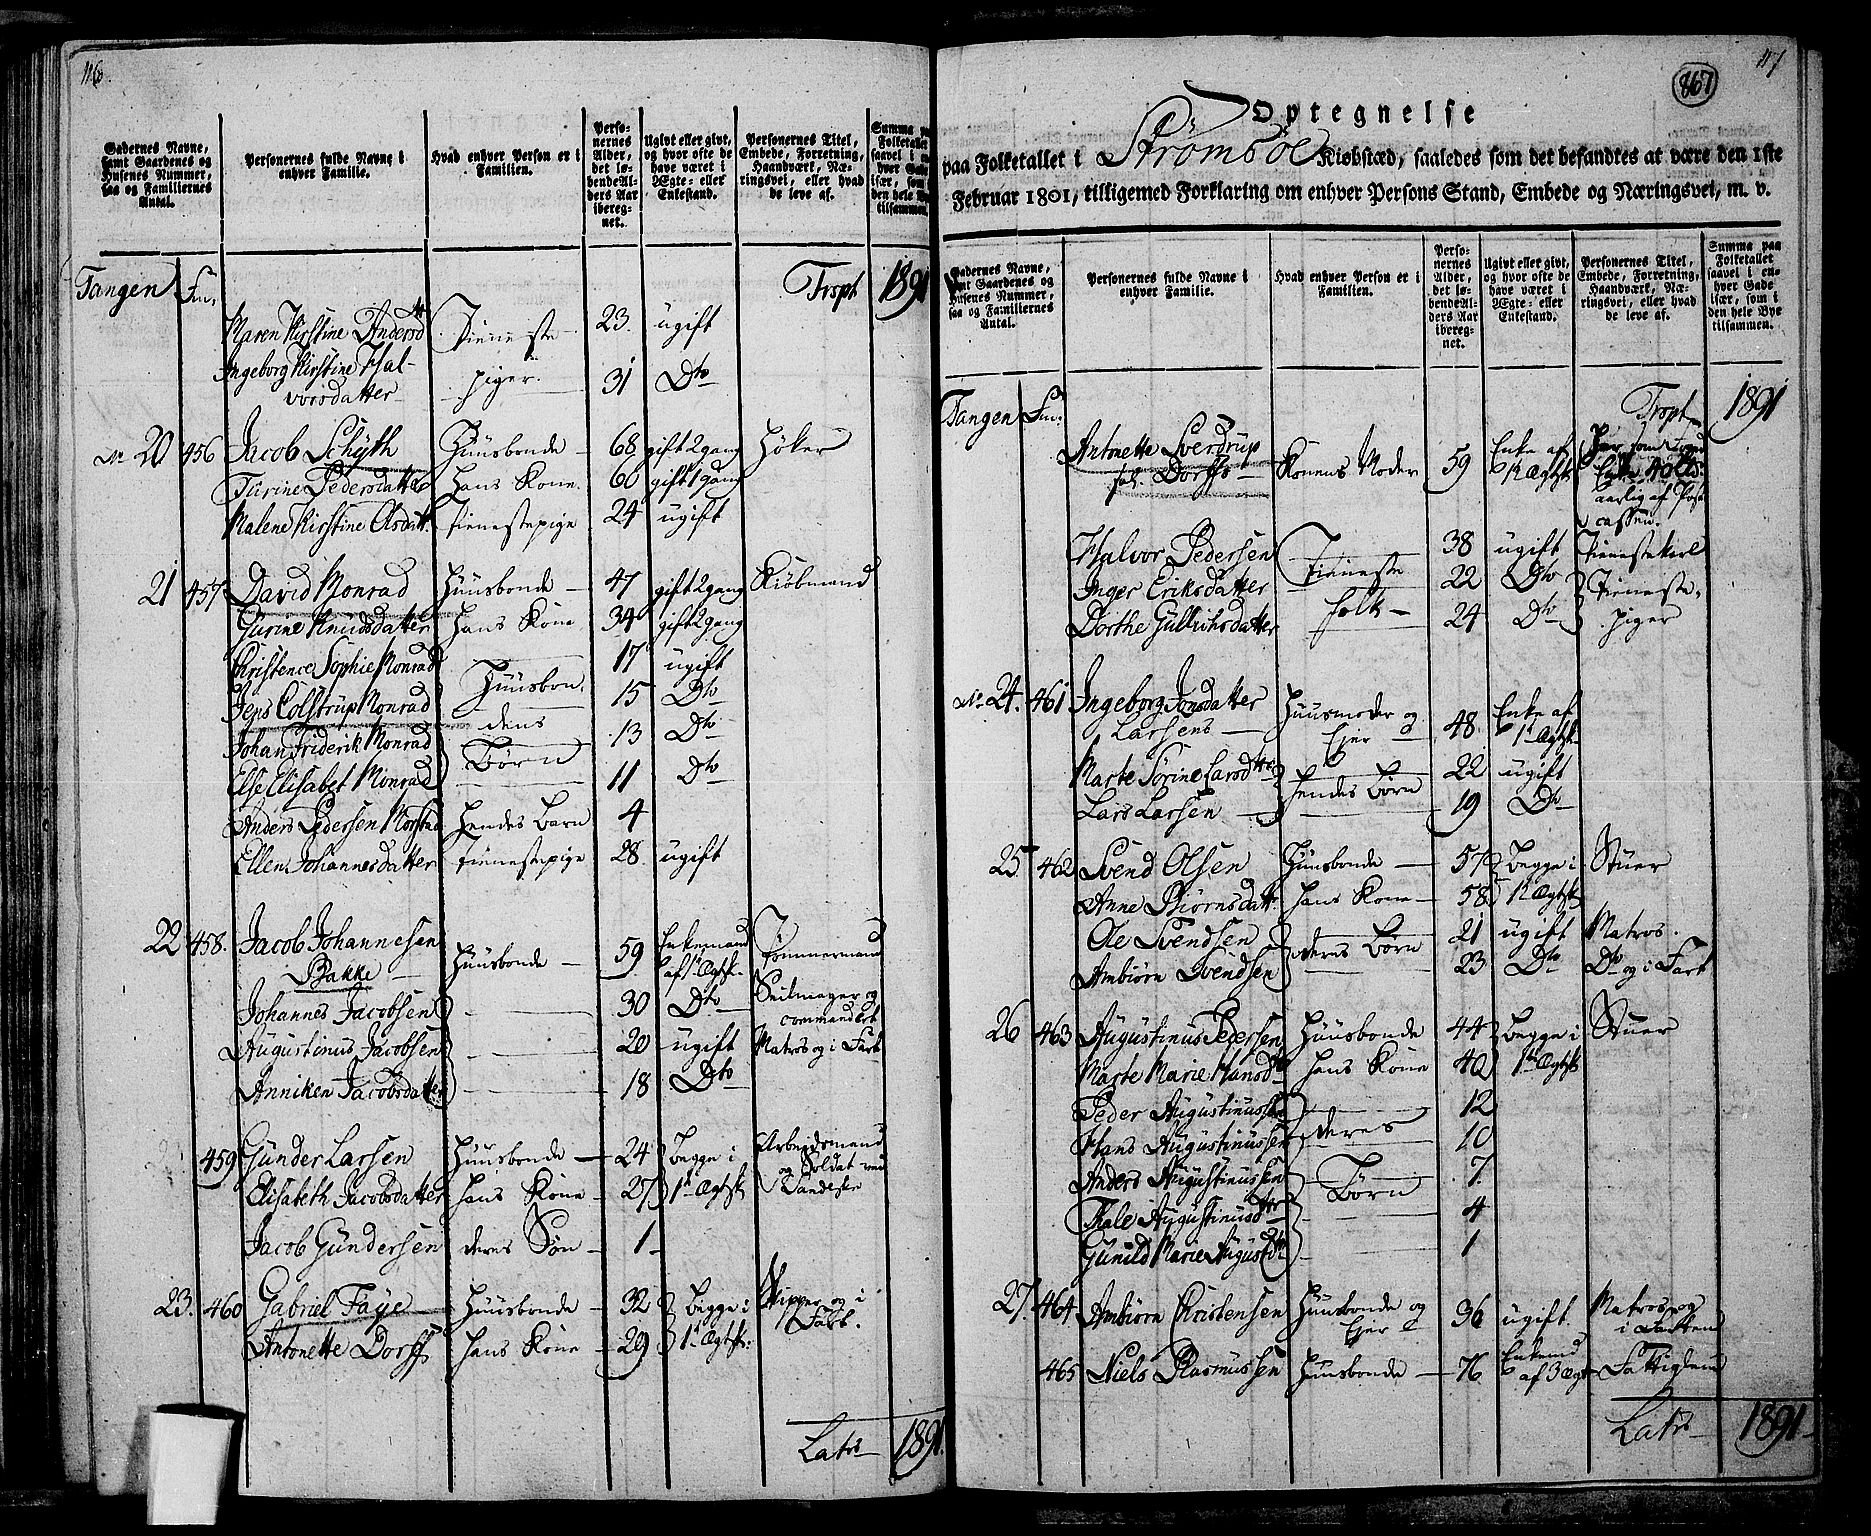 116.
Gadernes Navne, samt Gaardenes og Husenes Nummer, saa og Familiernes Antal.
Personernes fulde Navne i enhver Familie.
Hvad enhver Person er i Familien.
Personernes Alder, det løbende Alders Aar iberegnet.
Ugivt eller givt, og hvor ofte de have været i Ægte- eller Enkestand.
Personernes Titel, Embede, Forretning, Haandværk, Næringsvei, eller hvad de leve af.
Summa paa Folketallet saavel i enhver Gade især, som i den hele Bye tilsammen.
Tangen Trspt 1891
Maren Kirstine Andersd Tieneste 23. ugift
Ingeborg Kirstine Hal-
vorsdatter piger. 31 Dto
No 20 456 Jacob Schyth Huusbonde 68 gift 2 gang Høker
Turine Pedersdatter hans Kone. 60 gift 1 gang
Malene Kirstine Olsdatt. tienestepige 24 ugift
21 457 David Monrad Huusbonde 47 gift 2 gang Kiøbmand
Gurine Knudsdatter hans Kone 34 gift 2 gang
Christence Sophie Monrad 17 ugift
Jens Colstrup Monrad Huusbon- 15 Dto
Johan Friderik Monrad dens 13 Dto
Else Elisabet Monrad Børn 11 Dto
Anders Pedersen Morstad hendes Barn 4
Ellen Johannesdatter tienestepige 28 ugift
22 458. Jacob Johannesen Huusbonde 59 Enkemand Tømmermand
Bakke af 1te Ægtsk.
Johannes Jacobsen 30 Dto Seilmager og commandert
Augustinus Jacobsen 20 ugift Matros og i Fart
Anniken Jacobsdatter 18 Dto
459 Gunder Larsen Huusbonde 24 Begge i Arbeidsmand
og Soldat ved
Elisabeth Jacobsdatter hans Kone 27 1te Ægtsk Landeske
Jacob Gundersen deres Søn 1
23. 460 Gabriel Faye Huusbonde 32 Begge i Skipper og i
Antonette Dorff hans Kone 29 1te Ægtsk: Fart.
Latrs 1891.
117
867
Optegnelse
paa Folketallet i Strømsøe Kiøbstæd, saaledes som det befandtes at være den 1ste
Februar 1801, tilligemed Forklaring om enhver Persons Stand, Embede og Næringsvei, m. v.
Gadernes Navne, samt Gaardenes og Husenes Nummer, saa og Familiernes Antal.
Personernes fulde Navne i enhver Familie.
Hvad enhver Person er i Familien.
Personernes Alder, det løbende Alders Aar iberegnet.
Ugivt eller givt, og hvor ofte de have været i Ægte- eller Enkestand.
Personernes Titel, Embede, Forretning, Haandværk, Næringsvei, eller hvad de leve af.
Summa paa Folketallet saavel i enhver Gade især, som i den hele Bye tilsammen.
Tangen Trspt 1891
Antonette Sverdrup Enke af
fød. Dorffs Konens Moder 59 1t Ægtsk Enke 40 rd
aarlig af Post
cassen.
Halvor Pedersen Tieneste 38 ugift Tienestekarl
Inger Eriksdatter folk 22 Dto Tieneste
Dorthe Gullichsdatter 24 Dto piger
No 24. 461 Ingeborg Jonsdatter Huusmoder og Enke af
Larsens Ejer 48 1te Ægtsk
Marte Sørine Larsdtter hendes Børn 22 ugift
Lars Larsen 19 Dto
25 462 Svend Olsen Huusbonde 57 Begge i Stuer
Anne Biørnsdatt. hans Kone 58 1t Ægtsk
Ole Svendsen deres Børn 21 ugift Matros.
Ambiørn Svendsen 23 Dto Dto og i Fart
26 463 Augustinus Pedersen Huusbonde 44 Begge i Stuer
Marte Marie Hansd hans Kone 40 1te Ægtsk
Peder Augustinussen 12
Hans Augustinussen deres 10
Anders Augustinussen Børn 7.
Kale Augustinusdtr 4
Gunild Marie Augustd 1
27. 464 Ambiørn Christensen Huusbonde og 36 ugift. Matros og
Ejer i Farten
465 Niels Rasmussen Huusbonde 76 Enkemd
af 3 ægt Fattiglem
Latrs 1891